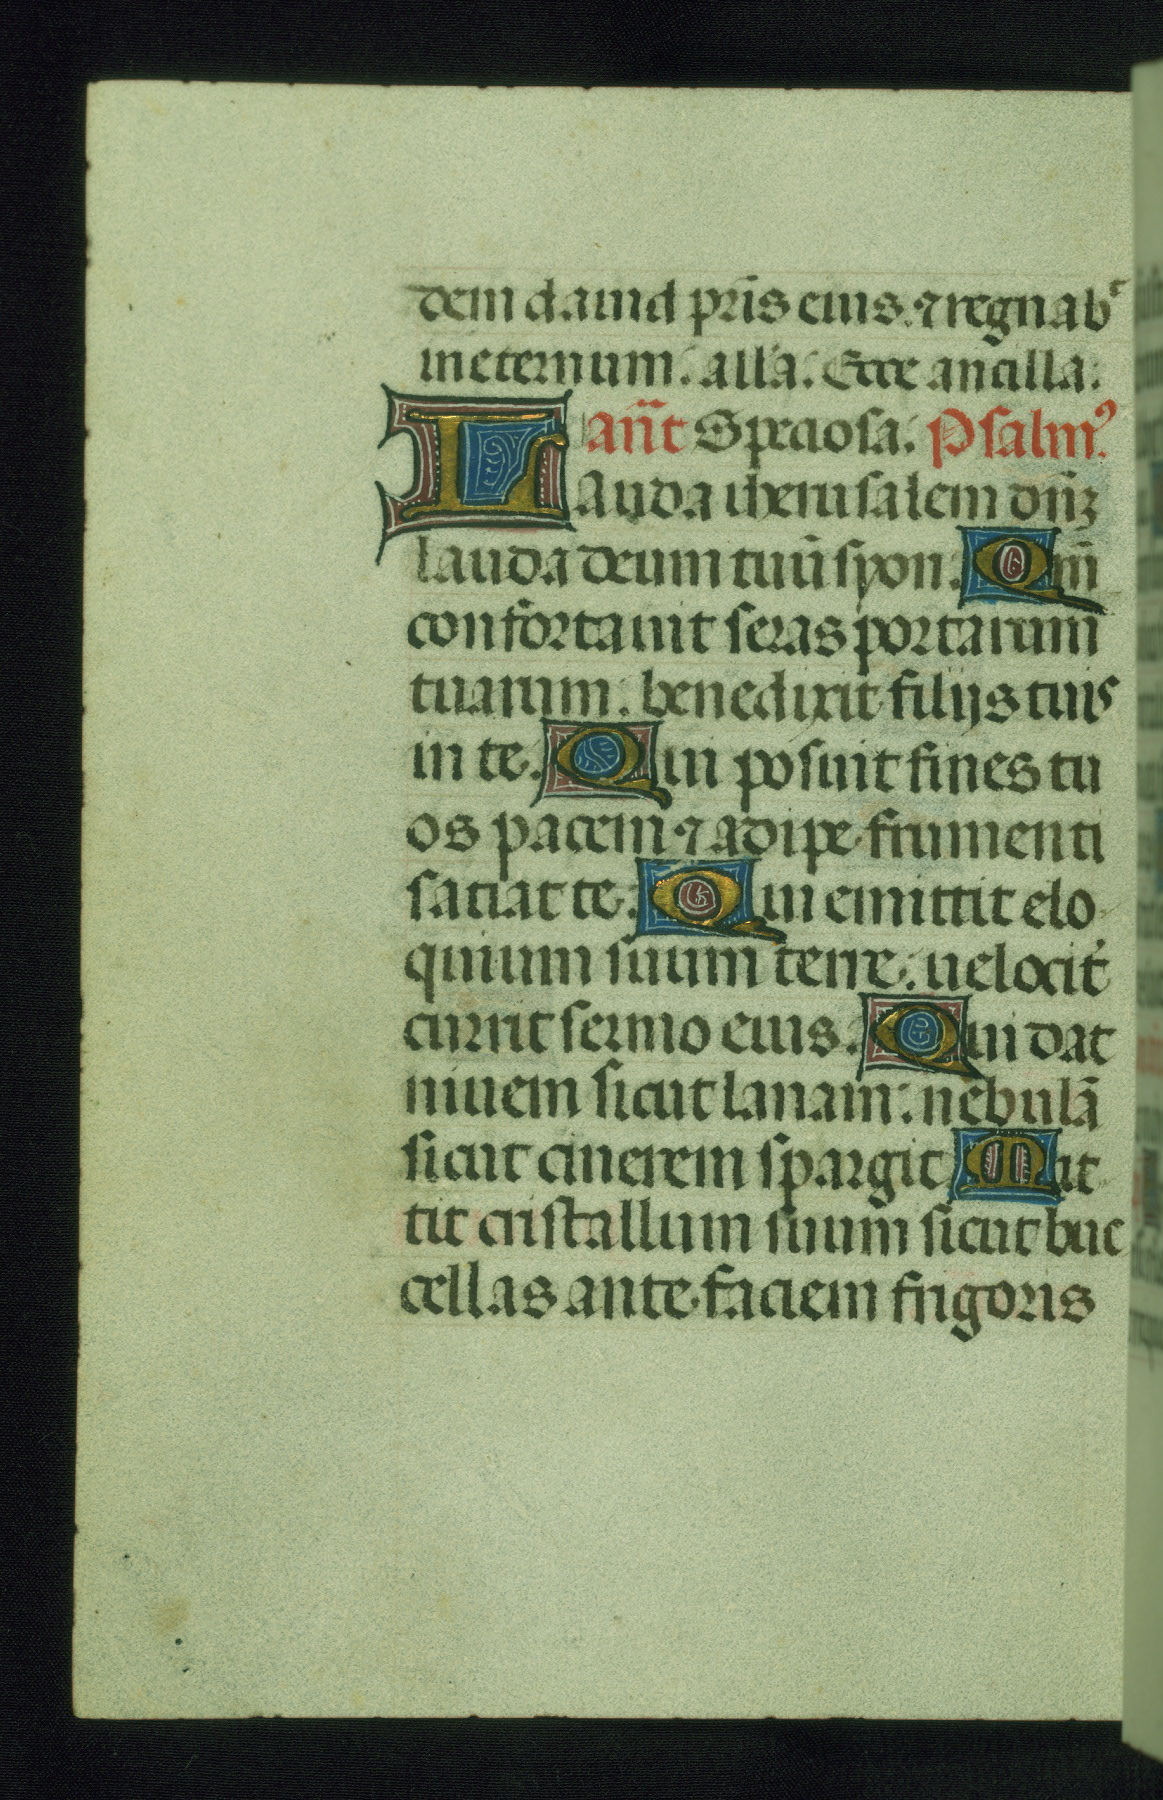 dem dauid pr̄is eius. ⁊ regnab᷑
in eternum. all̄a. Ecce ancilla.
an̄t Speciosa. Psalmꝰ.
Lauda iherusalem dn̄ꝫ
lauda deum tuū syon. Qm̄
confortauit seras portarum
tuarum. benedixit filijs tuis
in te. Qui posuit fines tu
os pacem ⁊ adipe frumenti
satiat te. Qui emittit elo
quium suum terre. uelocit̉
currit sermo eius. Qui dat
niuem sicut lanam. nebulā
sicut cinerem spargit Mit
tit cristallum suum sicut buc
cellas ante faciem frigoris